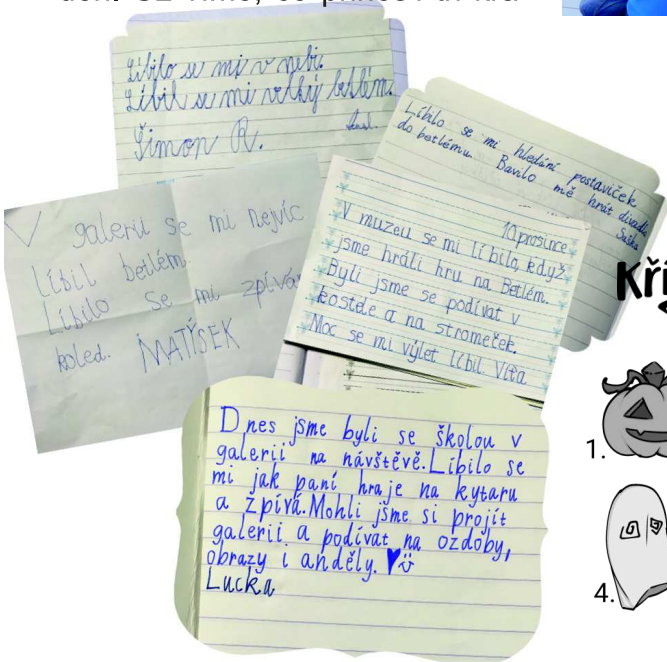 Líbilo se mi v nebi.
Líbil se mi velký betlém.
Šimon R.
Líbilo se mi hledání postaviček
do betlému. Bavilo mě hrát divadlo
V galerii se mi nejvíc
líbil betlém.
Líbilo se mi zpívání
koled. MATÝSEK
10.prosince
V muzeu se mi líbilo, když
jsme hráli hru na Betlém.
Byli jsme se podívat v
kostele a na stromeček.
Moc se mi výlet líbil. Víťa
Dnes jsme byli se školou v
galerii na návštěvě. Líbilo se
mi jak paní hraje na kytaru
a zpívá. Mohli jsme si projít
galerii a podívat na ozdoby,
obrazy i anděly.
Lucka
Kří
1.
4.